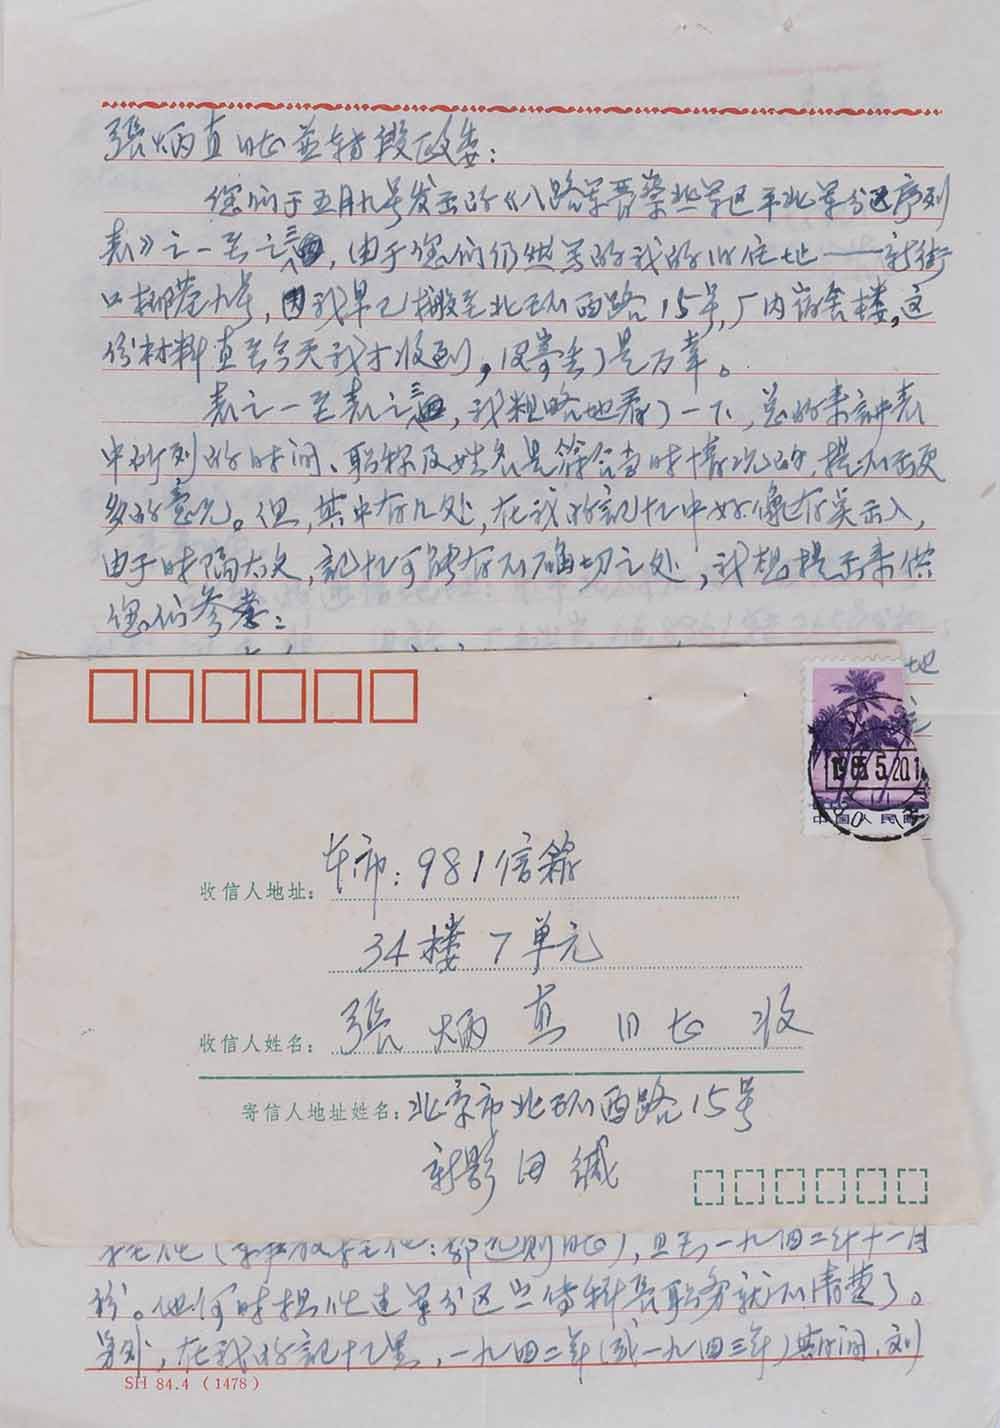 張炳真同志並转段政委：
您们于五月九号发出的《八路军晋察冀军区平北军分区序列
表》之一至之三，由于您们仍然写的我的旧住地——新街
口柳巷十号，因我早已搬至北三环西路15号，厂内宿舍楼，这
份材料直至今天我才收到，没寄丢了是万幸。
表之一至表之三，我粗略地看了一下，总的来讲表
中所列的时间、职称及姓名是符合当时情况的，提不出更
多的意见。但，其中有几处，在我的記忆中好像还有出入，
由于时隔太久，記忆可能有不确切之处，我想提出来供
您们参考：
地
中国人民邮
1985.5.20.1
收信人地址：本市：981信箱
34楼7单元
收信人姓名：張炳真同志收
寄信人地址姓名：北京市北三环西路15号
新影田缄
任他（ ：郝远 同志），直到一九四二年十一月
份。他何时担任過军分区 科長职务就不清楚了。
另外，在我的記忆里，一九四二年（或一九四三年）其间，刘
SH 84.4 (1478)